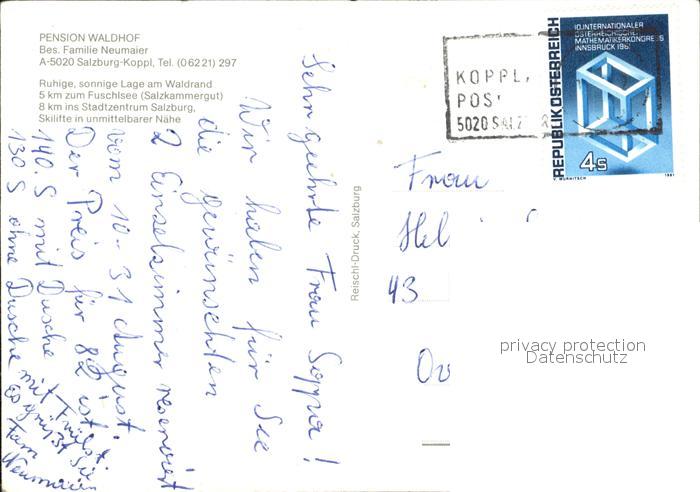 PENSION WALDHOF
Bes. Familie Neumaier
A-5020 Salzburg-Koppl, Tel. (06221) 297
Ruhige, sonnige Lage am Waldrand
5 km zum Fuschlsee (Salzkammergut)
8 km ins Stadtzentrum Salzburg,
Skilifte in unmittelbarer Nähe
Sehr geehrte Frau Soppa!
Wir haben für Sie
die gewünschten
2 Einzelzimmer reserviert
vom 10-31 August.
Der Preis für 82 ist:
140.S mit Dusche
130 S ohne Dusche mit Frühst.
es grüßt Sie
Fam
Neumaier
Reischl-Druck, Salzburg
KOPPL,
POS
5020 SALZ
10.INTERNATIONALER
ÖSTERREICHISCHER
MATHEMATIKERKONGRESS
INNSBRUCK 1981
REPUBLIK ÖSTERREICH
4S
1981
Frau
Hel
43
Ov
privacy protection
Datenschutz